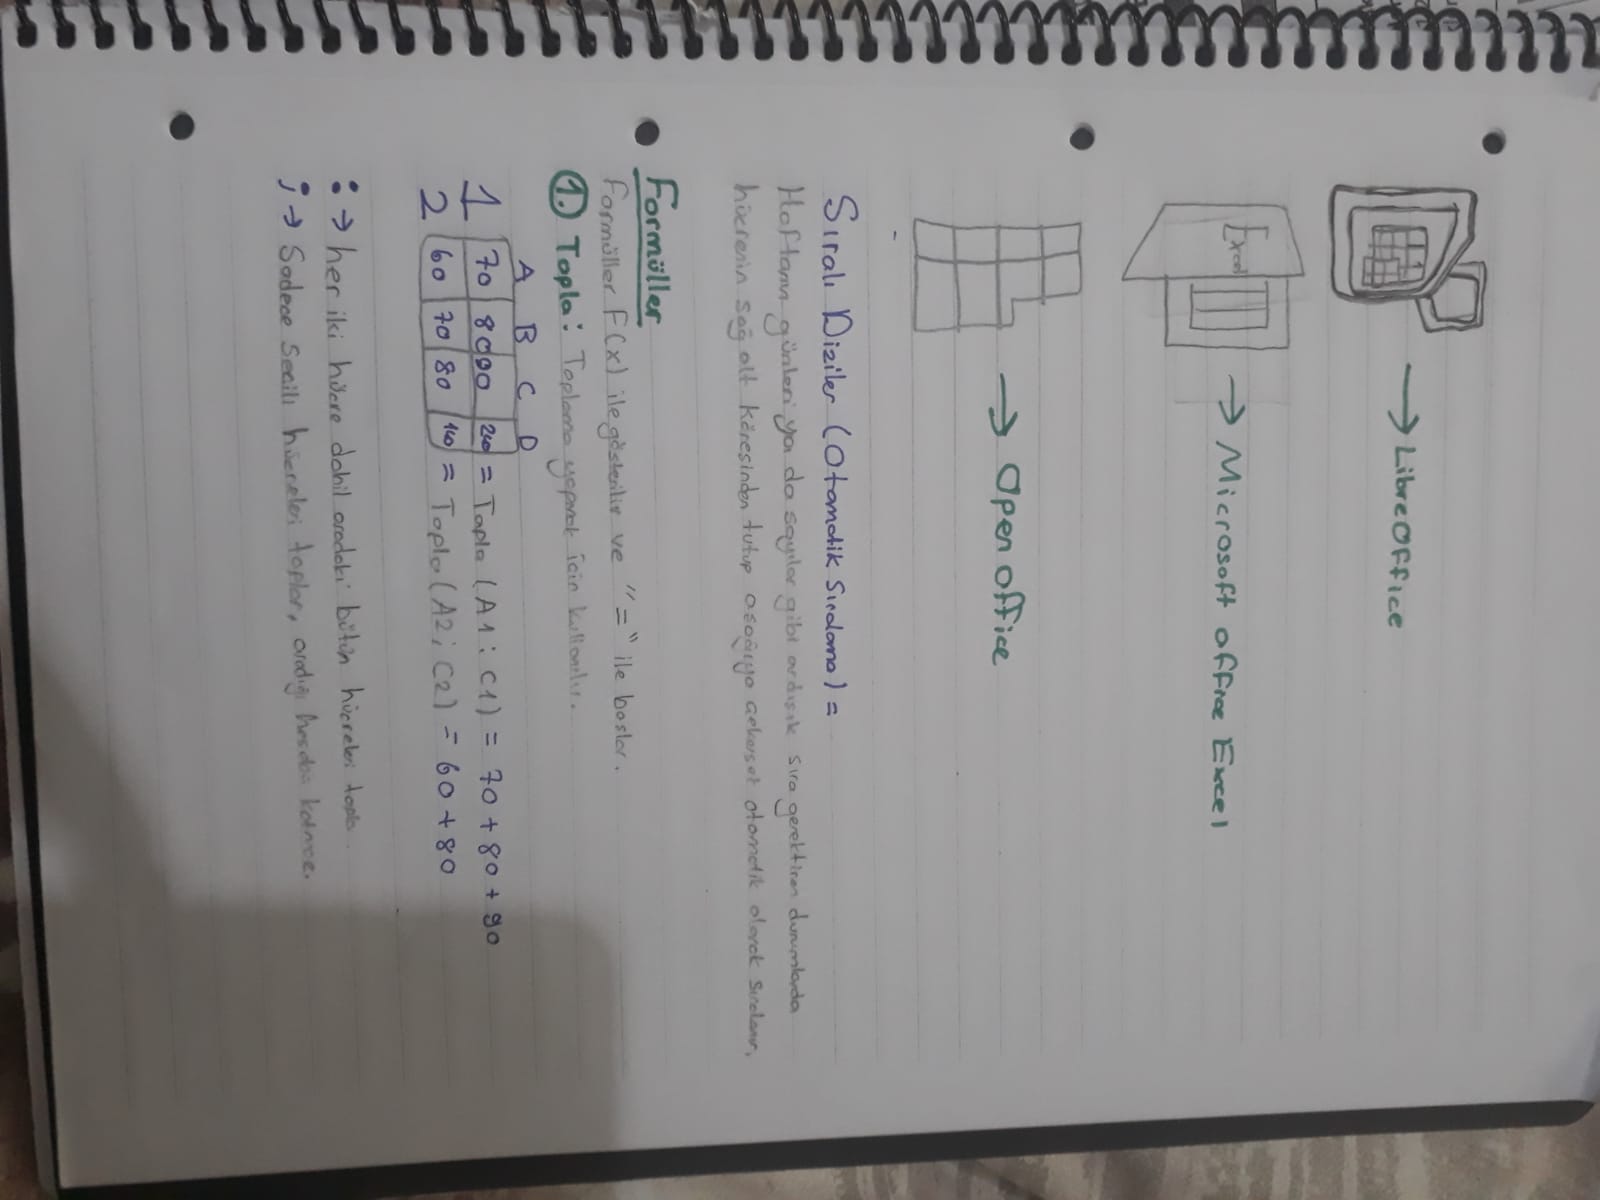 → LibreOffice
Excel
→ Microsoft office Excel
→ Open office
Sıralı Diziler (Otomatik Sıralama) =
Haftanın günleri ya da sayılar gibi ardışık sıra gerektiren durumlarda
hücrenin sağ alt köresinden tutup aşağıya çekersek otomatik olarak sıralanır.
Formüller
Formüller F(x) ile gösterilir ve "=" ile başlar.
1. Topla: Toplama yapmak için kullanılır.
A B C D
1 70 80 90 240 = Topla (A1 : C1) = 70 + 80 + 90
2 60 70 80 140 = Topla (A2 ; C2) = 60 + 80
: → her iki hücre dahil aradaki bütün hücreleri topla
; → Sadece seçili hücreleri toplar, aradığı hesaba katmaz.